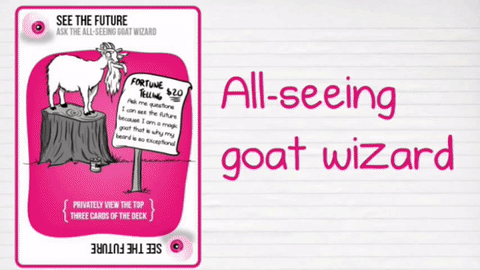 SEE THE FUTURE
ASK THE ALL-SEEING GOAT WIZARD
FORTUNE
TELLING $20
Ask me questions
I can see the future
because I am a magic
goat that is why my
beard is so exceptional
{ PRIVATELY VIEW THE TOP
THREE CARDS OF THE DECK }
SEE THE FUTURE
All-seeing
goat wizard